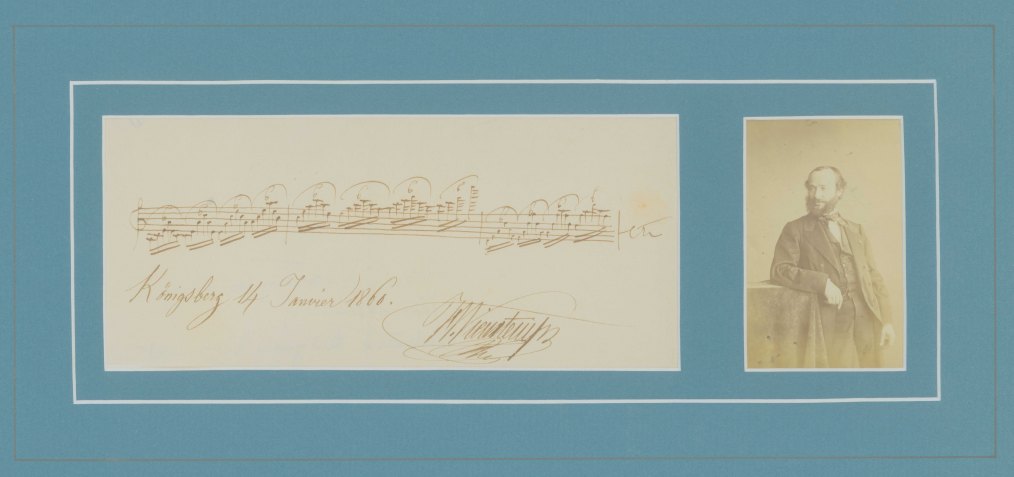 etc
Königsberg 14 Janvier 1860.
H. Vieuxtemps